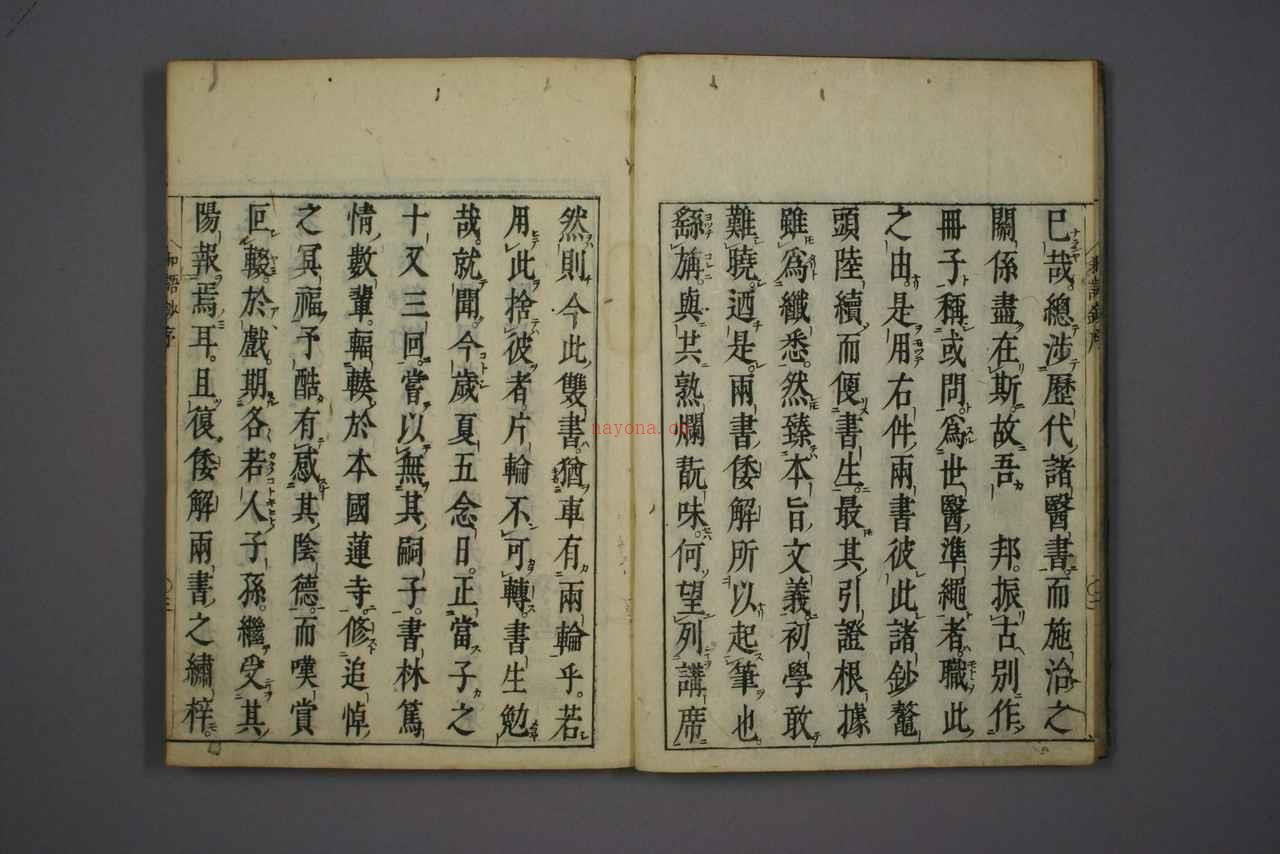 已哉總涉歷代諸醫書而施治之
關係盡在斯故吾 邦振古別作
冊子稱或問爲世醫準繩者職此
之由是用右件兩書彼此諸鈔鼇
頭陸續而便書生最其引證根據
雖爲纖悉然臻本旨文義初學敢
難曉迺是兩書倭解所以起筆也
繇旃與共熟爛翫味何望列講席
然則今此雙書猶車有兩輪乎若
用此捨彼者片輪不可轉書生勉
哉就聞今歲夏五念日正當子之
十又三回嘗以無其嗣子書林篤
情數輩輻輳於本國蓮寺修追悼
之冥福予酷有感其陰德而嘆賞
叵輟於戲期各若人子孫繼受其
陽報焉耳且復倭解兩書之繡梓
nayona.cn